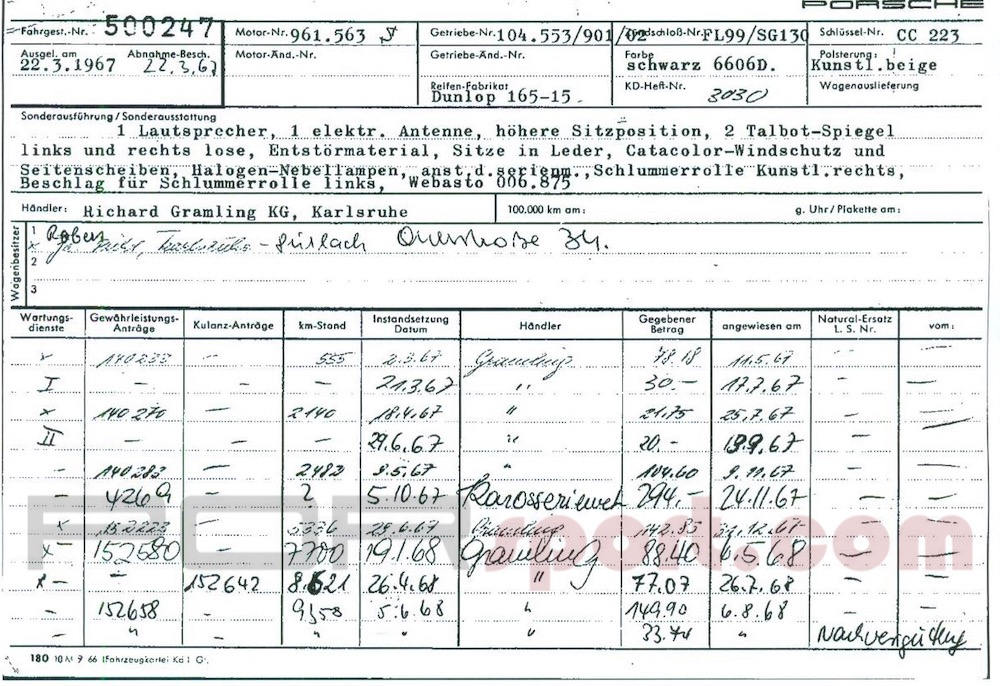 PORSCHE
Fahrgest.-Nr. 500247 Motor-Nr. 961.563 Getriebe-Nr. 104.553/901/02 FL99/SG130 Schlüssel-Nr. CC 223
Ausgel. am 22.3.1967 Abnahme-Besch. 22.3.67 Motor-Änd.-Nr. Getriebe-Änd.-Nr. Farbe schwarz 6606D. Polsterung: Kunstl.beige
Reifen-Fabrikat Dunlop 165-15 KD-Heft-Nr. 3030 Wagenauslieferung
Sonderausführung/Sonderausstattung
1 Lautsprecher, 1 elektr. Antenne, höhere Sitzposition, 2 Talbot-Spiegel
links und rechts lose, Entstörmaterial, Sitze in Leder, Catacolor-Windschutz und
Seitenscheiben, Halogen-Nebellampen, anst.d.serienm.,Schlummerrolle Kunstl.rechts,
Beschlag für Schlummerrolle links, Webasto 006.875
Händler: Richard Gramling KG, Karlsruhe 100.000 km am: g. Uhr/Plakette am:
Wagenbesitzer
1 34.
2
3
Wartungsdienste Gewährleistungs-Anträge Kulanz-Anträge km-Stand Instandsetzung Datum Händler Gegebener Betrag angewiesen am Natural-Ersatz L. S. Nr. vom:
x 140233 - 555 2.3.67 Gramling 78.18 11.5.67 - -
I - - - 21.3.67 " 30.- 17.7.67 - -
x 140270 - 2140 18.4.67 " 21.75 25.7.67 - -
II - - - 29.6.67 " 20.- 19.9.67 -
- 140283 - 2482 9.5.67 " 104.60 9.11.67 - -
- 4269 - 2 5.10.67 294.- 24.11.67 - -
x 152223 - 5336 29.6.67 Gramling 142.85 - -
x 152680 - 7700 19.1.68 Gramling 88.40 6.5.68 - -
x - " 152642 8.621 26.4.68 " 77.07 26.7.68 - -
- 152658 - 5.6.68 " 149.90 6.8.68 - -
- " - " " " 33.74 " Nachvergütung
PCARspod.com
180 10 M 9 66 (Fahrzeugkartei Kd 1 G).